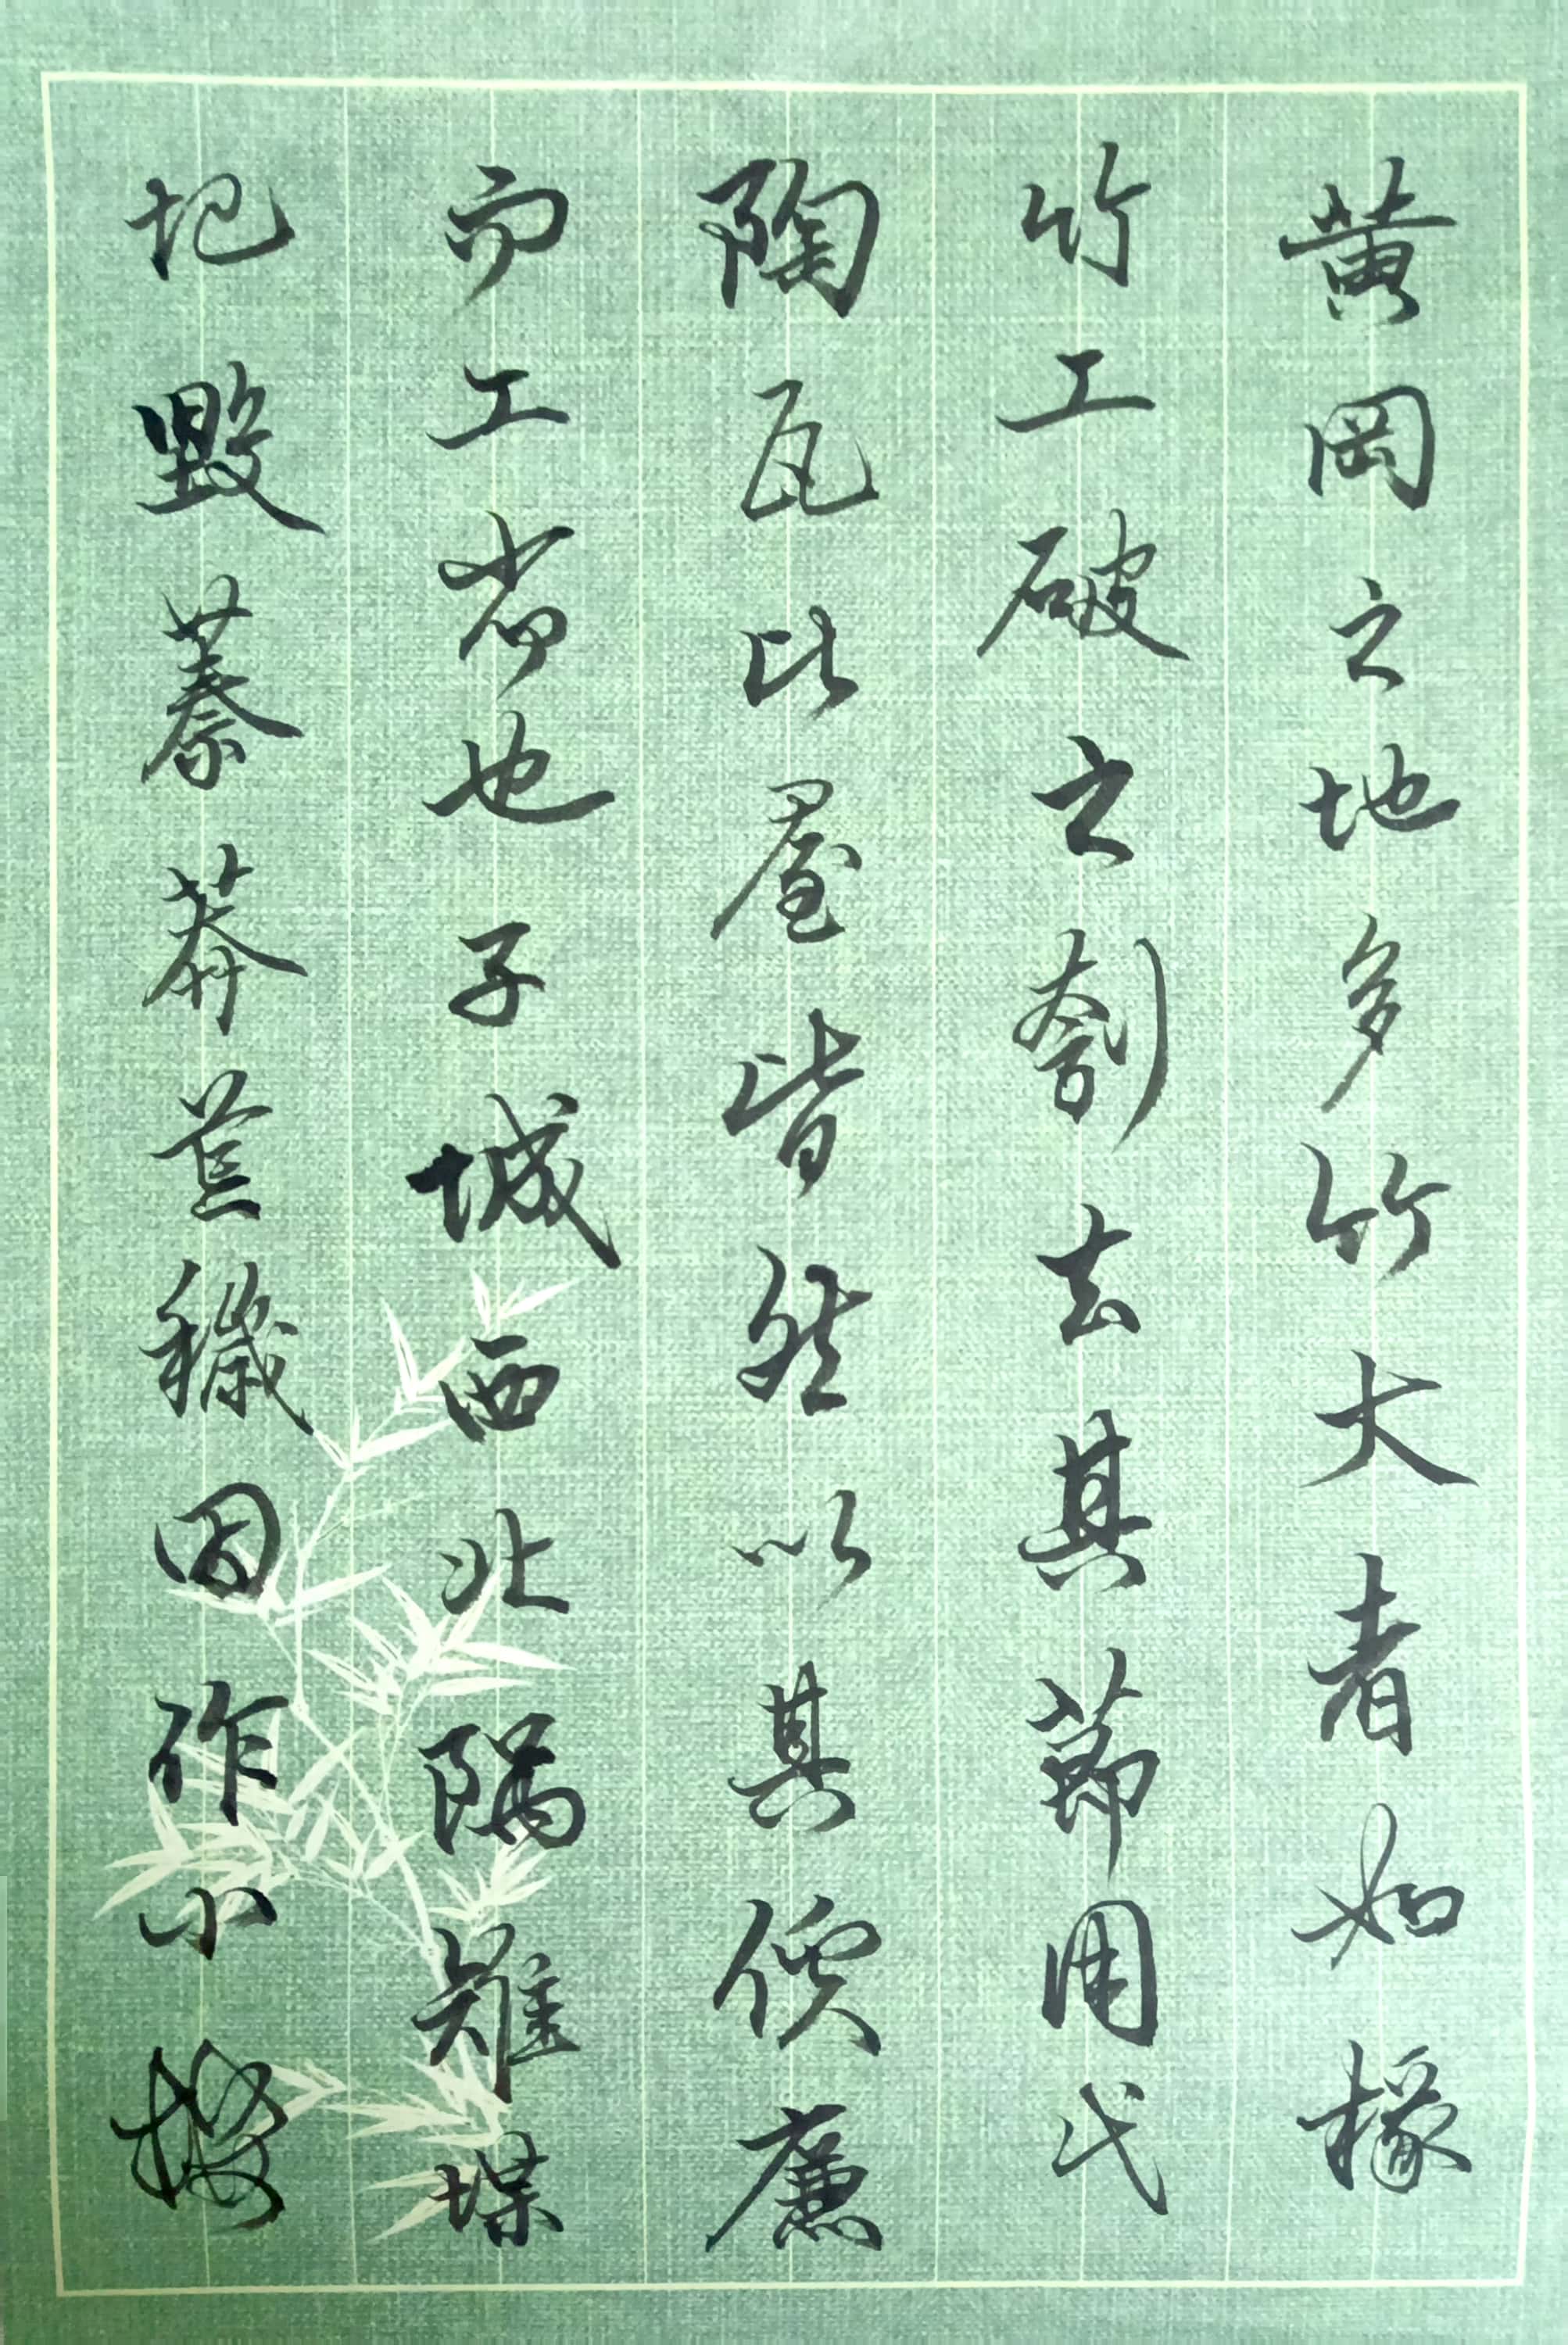 黄岡之地多竹大者如椽
竹工破之刳去其節用代
陶瓦比屋皆然以其價廉
而工省也子城西北隅雉堞
圮毀蓁莽荒穢因作小樓